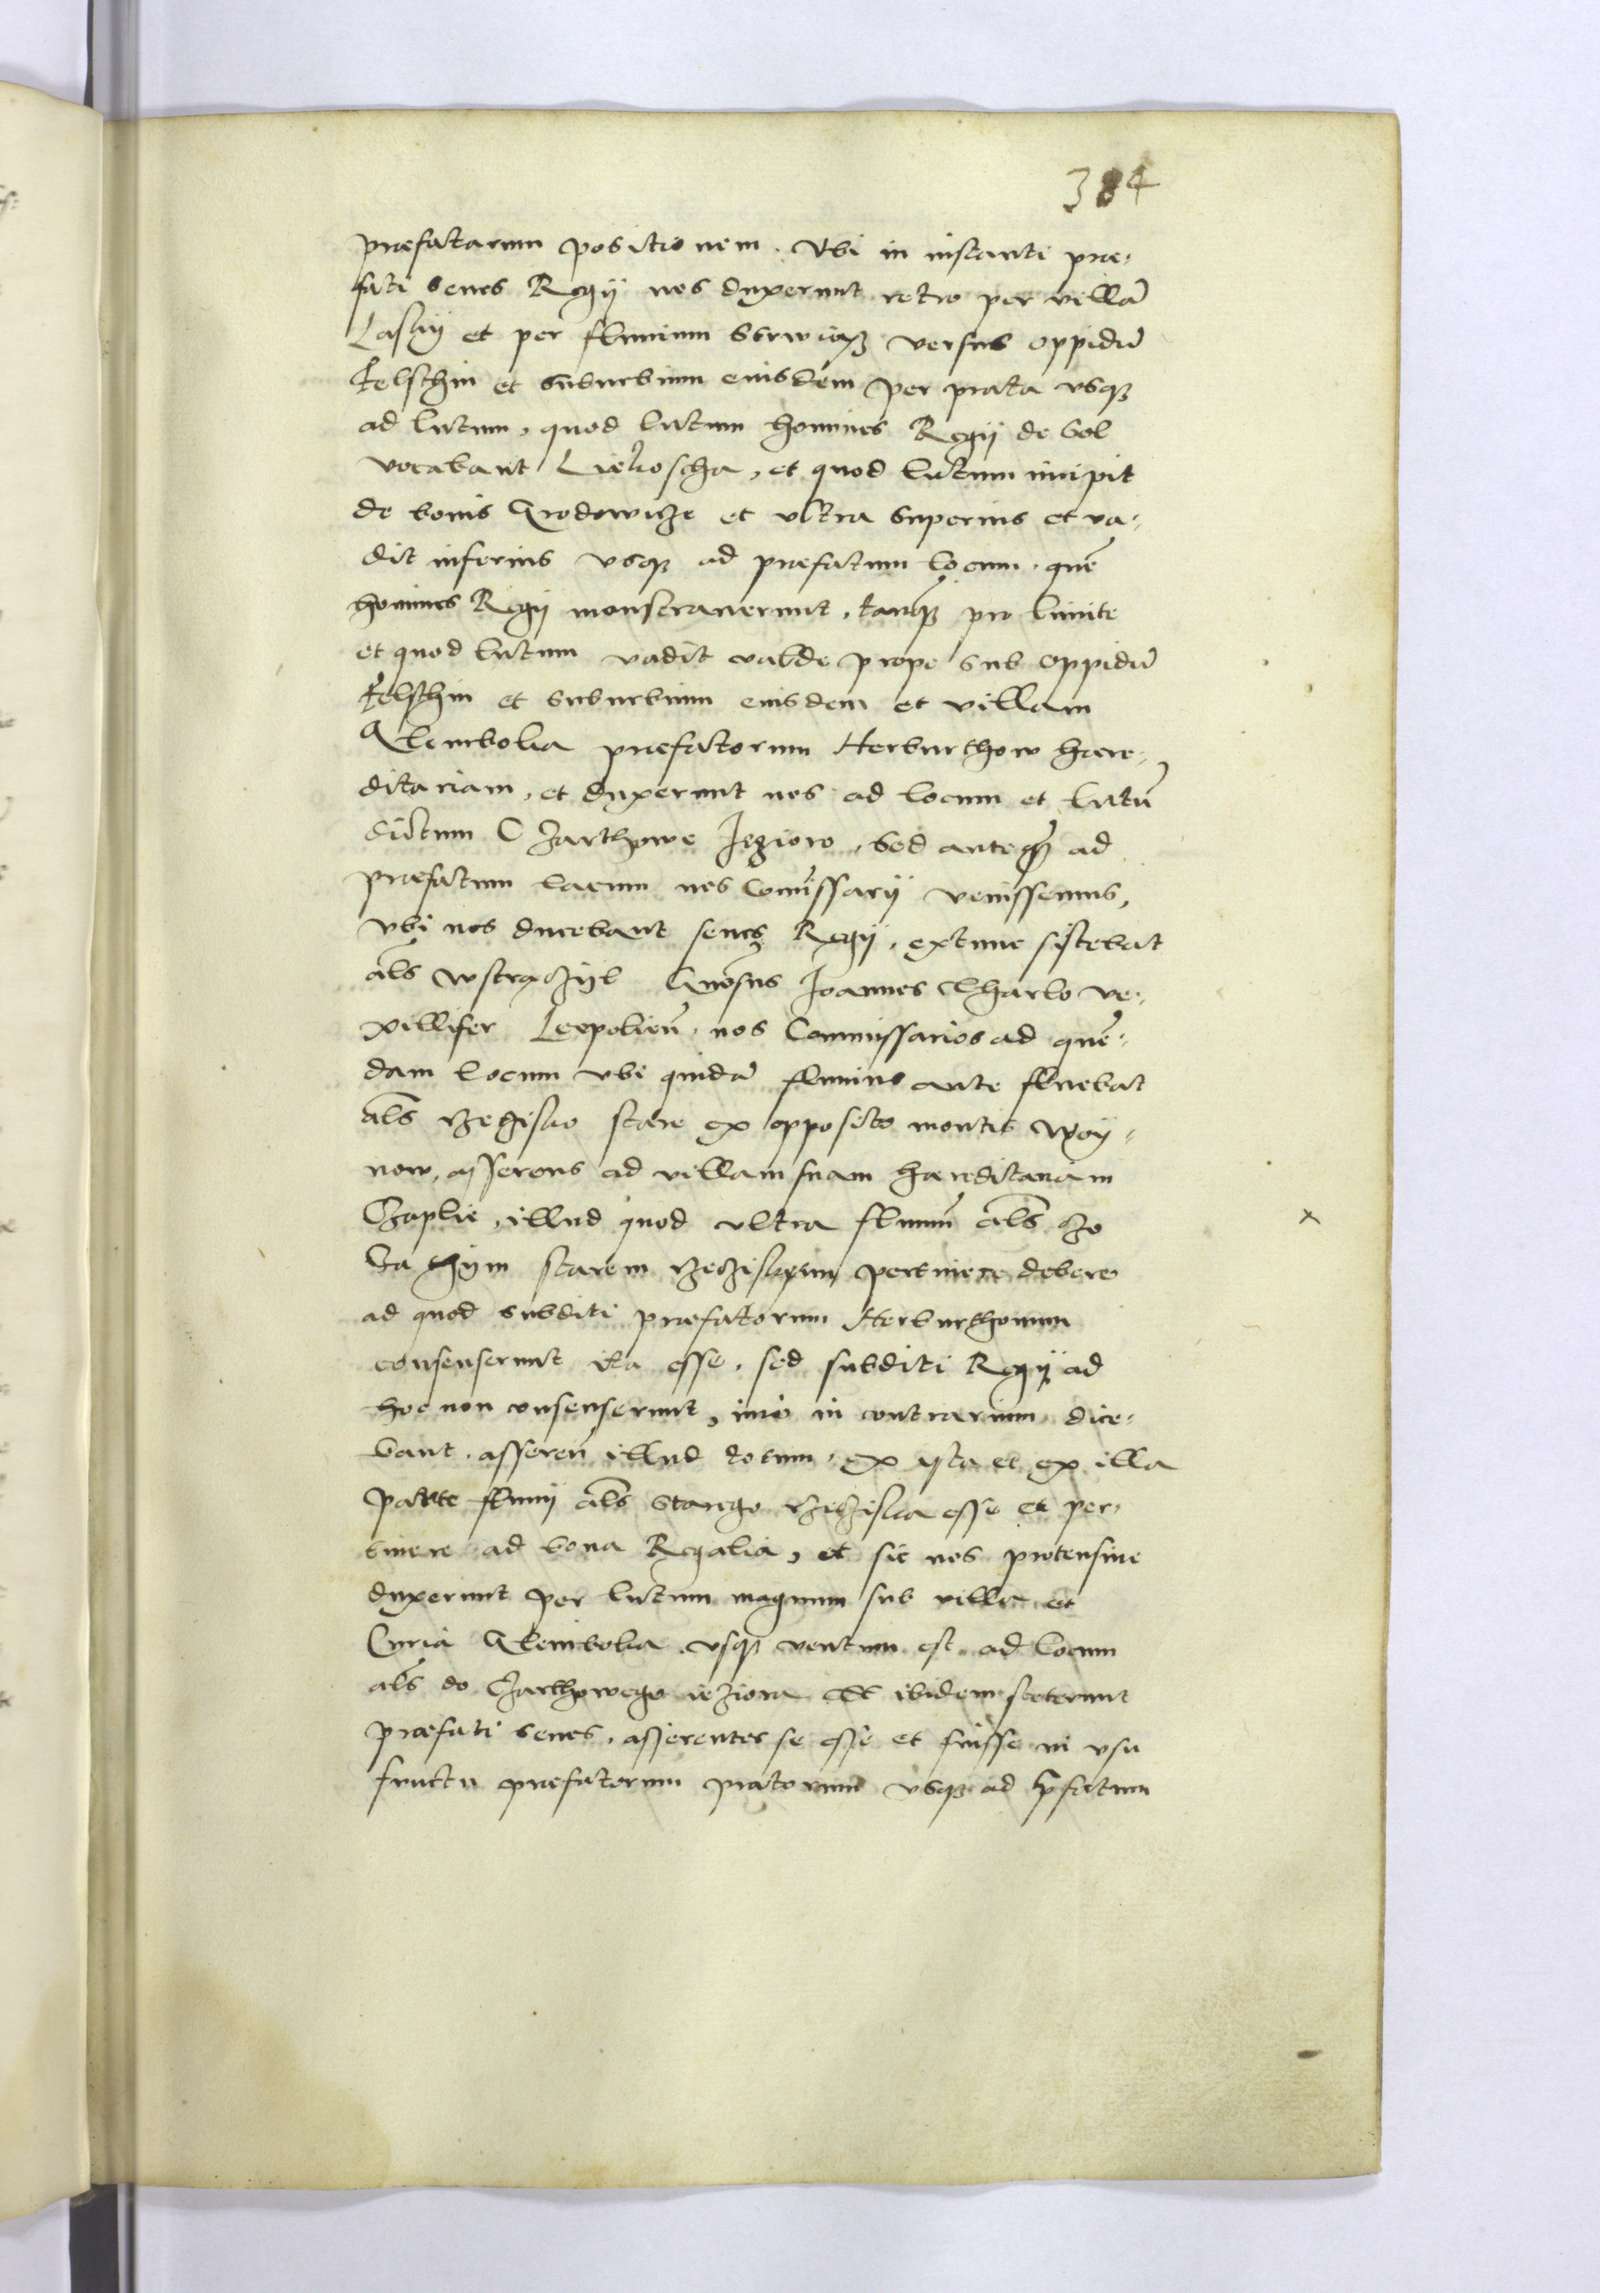 384
præfatarum positionem. Vbi in instanti præ-
fati senes Regij nos duxerunt retro per villā
Lasky et per fluuium Strwiąsz versus oppidū
Felschin et suburbium eiusdem per prata vsqȝ
ad lutum, quod lutum homines Regij de Vol
vocabant Liehoscha, et quod lutum incipit
de bonis Grodowicze et vltra superius et va-
dit inferius vsqȝ ad præfatum locum, quē
homines Regij monstrauerunt, tanqȝ pro limite
et quod lutum vadit valde prope sub oppidū
Felschin et suburbium eiusdem et villam
Glembolia præfatorum Herburthow hære-
ditariam, et duxerunt nos ad locum et lutū
dictum Czarthowe Jezioro, sed anteqȝ ad
præfatum lacum nos Comissarij venissemus,
vbi nos ducebant senes Regij, extunc sistebat
als wstraczyl Gnosus Joannes Tharlo ve-
xillifer Leopolieñ nos Commissarios ad quē-
dam locum vbi quidā fluuius ante fluebat
als rzeczisko stare ex opposito montis Woy-
now, asserens ad villam suam hæreditariam
Czaplie, illud quod vltra fluuiū als zo
Ta thym starem rzecziskyem pertinere debere
ad quod subditi præfatorum Herburthouum
consenserunt ita esse, sed subditi Regij ad
hoc non consenserunt, imo in contrarium dice-
bant, assereñ illud totum, ex ista et ex illa
parte fluuij als starego rzecziska esse et per-
tinere ad bona Regalia, et sic nos protensiue
duxerunt per lutum magnum sub villa et
Curia Glembolia vsqȝ ventum est ad locum
als do Czarthowego ieziora Et ibidem steterunt
præfati senes, asserentes se esse et fuisse in vsu
fructu præfatorum pratorum vsqȝ ad p̄fatum